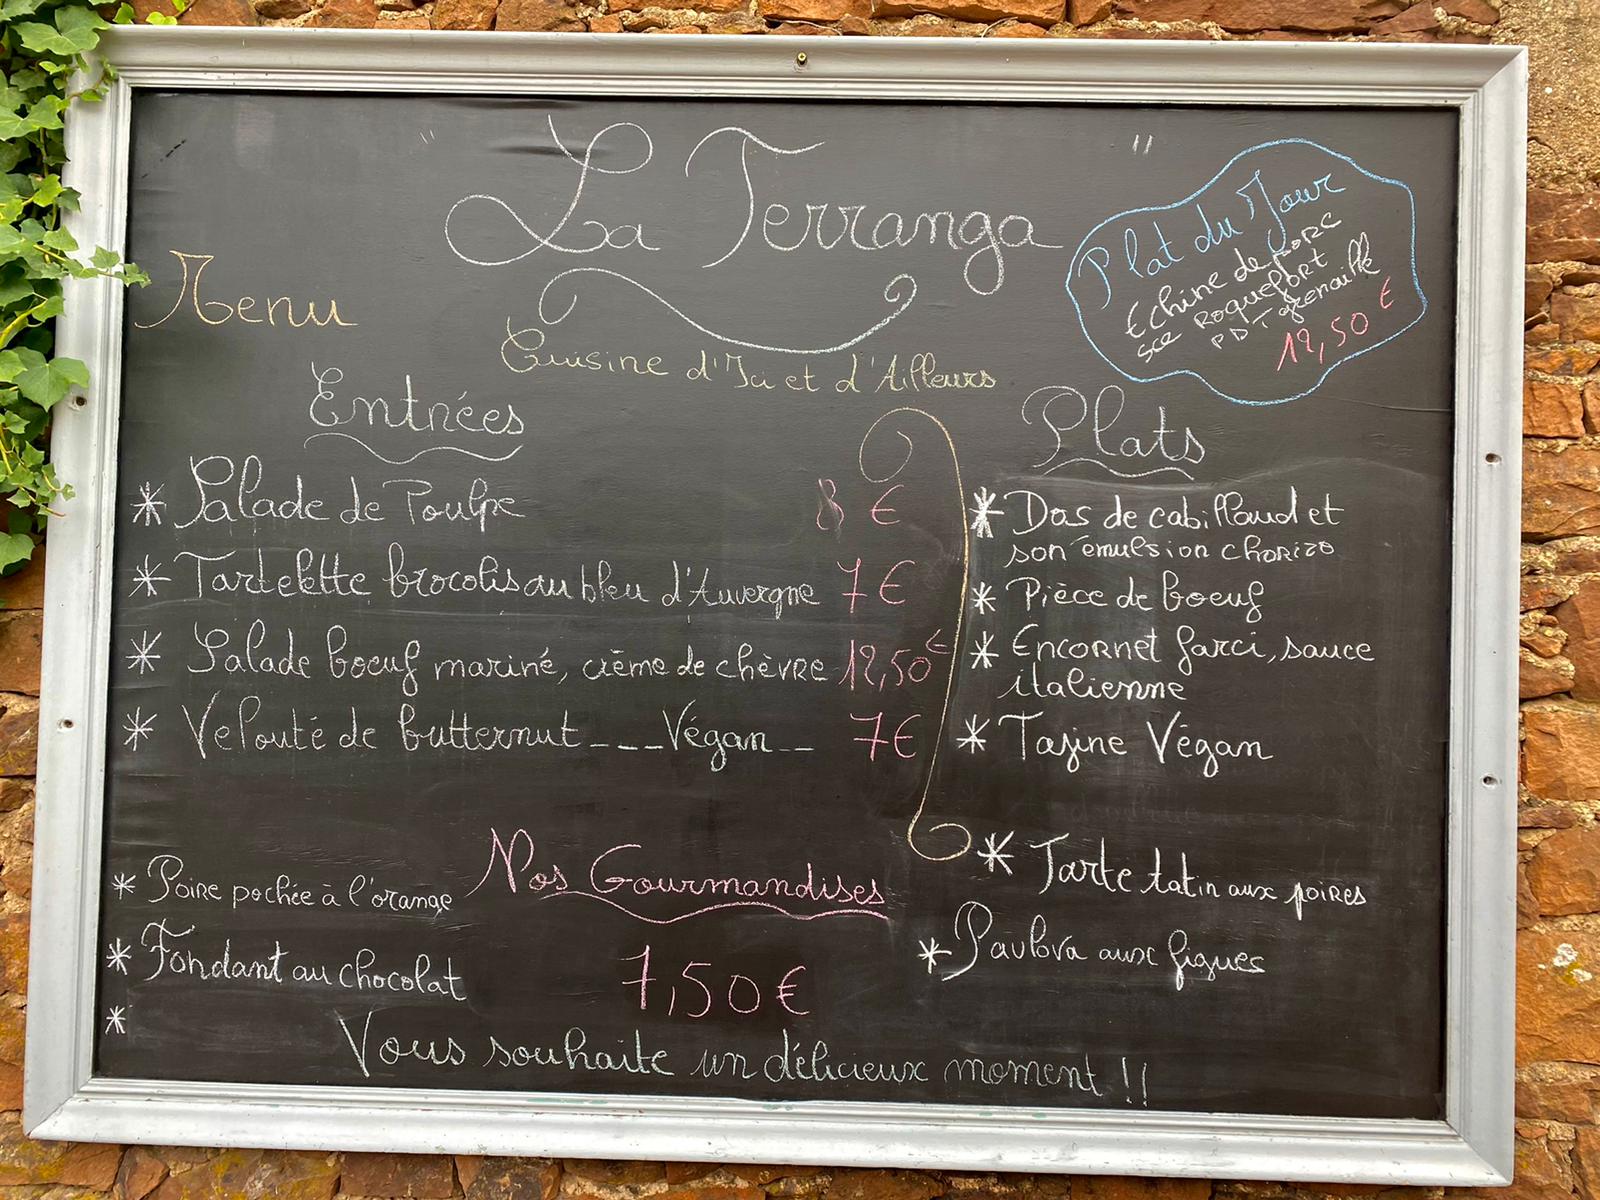 " La Terranga "
Cuisine d'Ici et d'Ailleurs
Menu
Plat du Jour
Echine de porc
sce Roquefort
PDT grenaille
12,50 €
Entrées
* Salade de Poulpe 8 €
* Tartelette brocolis au bleu d'Auvergne 7 €
* Salade boeuf mariné, crème de chèvre 12,50 €
* Velouté de butternut _ _ _ Végan _ _ 7 €
Plats
* Dos de cabillaud et
son émulsion chorizo
* Pièce de boeuf
* Encornet farci, sauce
italienne
* Tajine Végan
Nos Gourmandises
7,50 €
* Poire pochée à l'orange
* Fondant au chocolat
*
* Tarte tatin aux poires
* Pavlova aux figues
Vous souhaite un délicieux moment !!